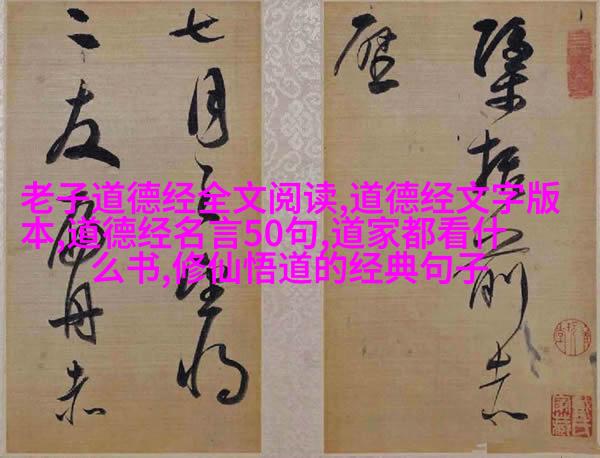 括前赤
壁
七月之望将
二友扁舟赤
老子道德经全文阅读,道德经文字版
本,道德经名言50句,道家都看什
么书,修仙悟道的经典句子